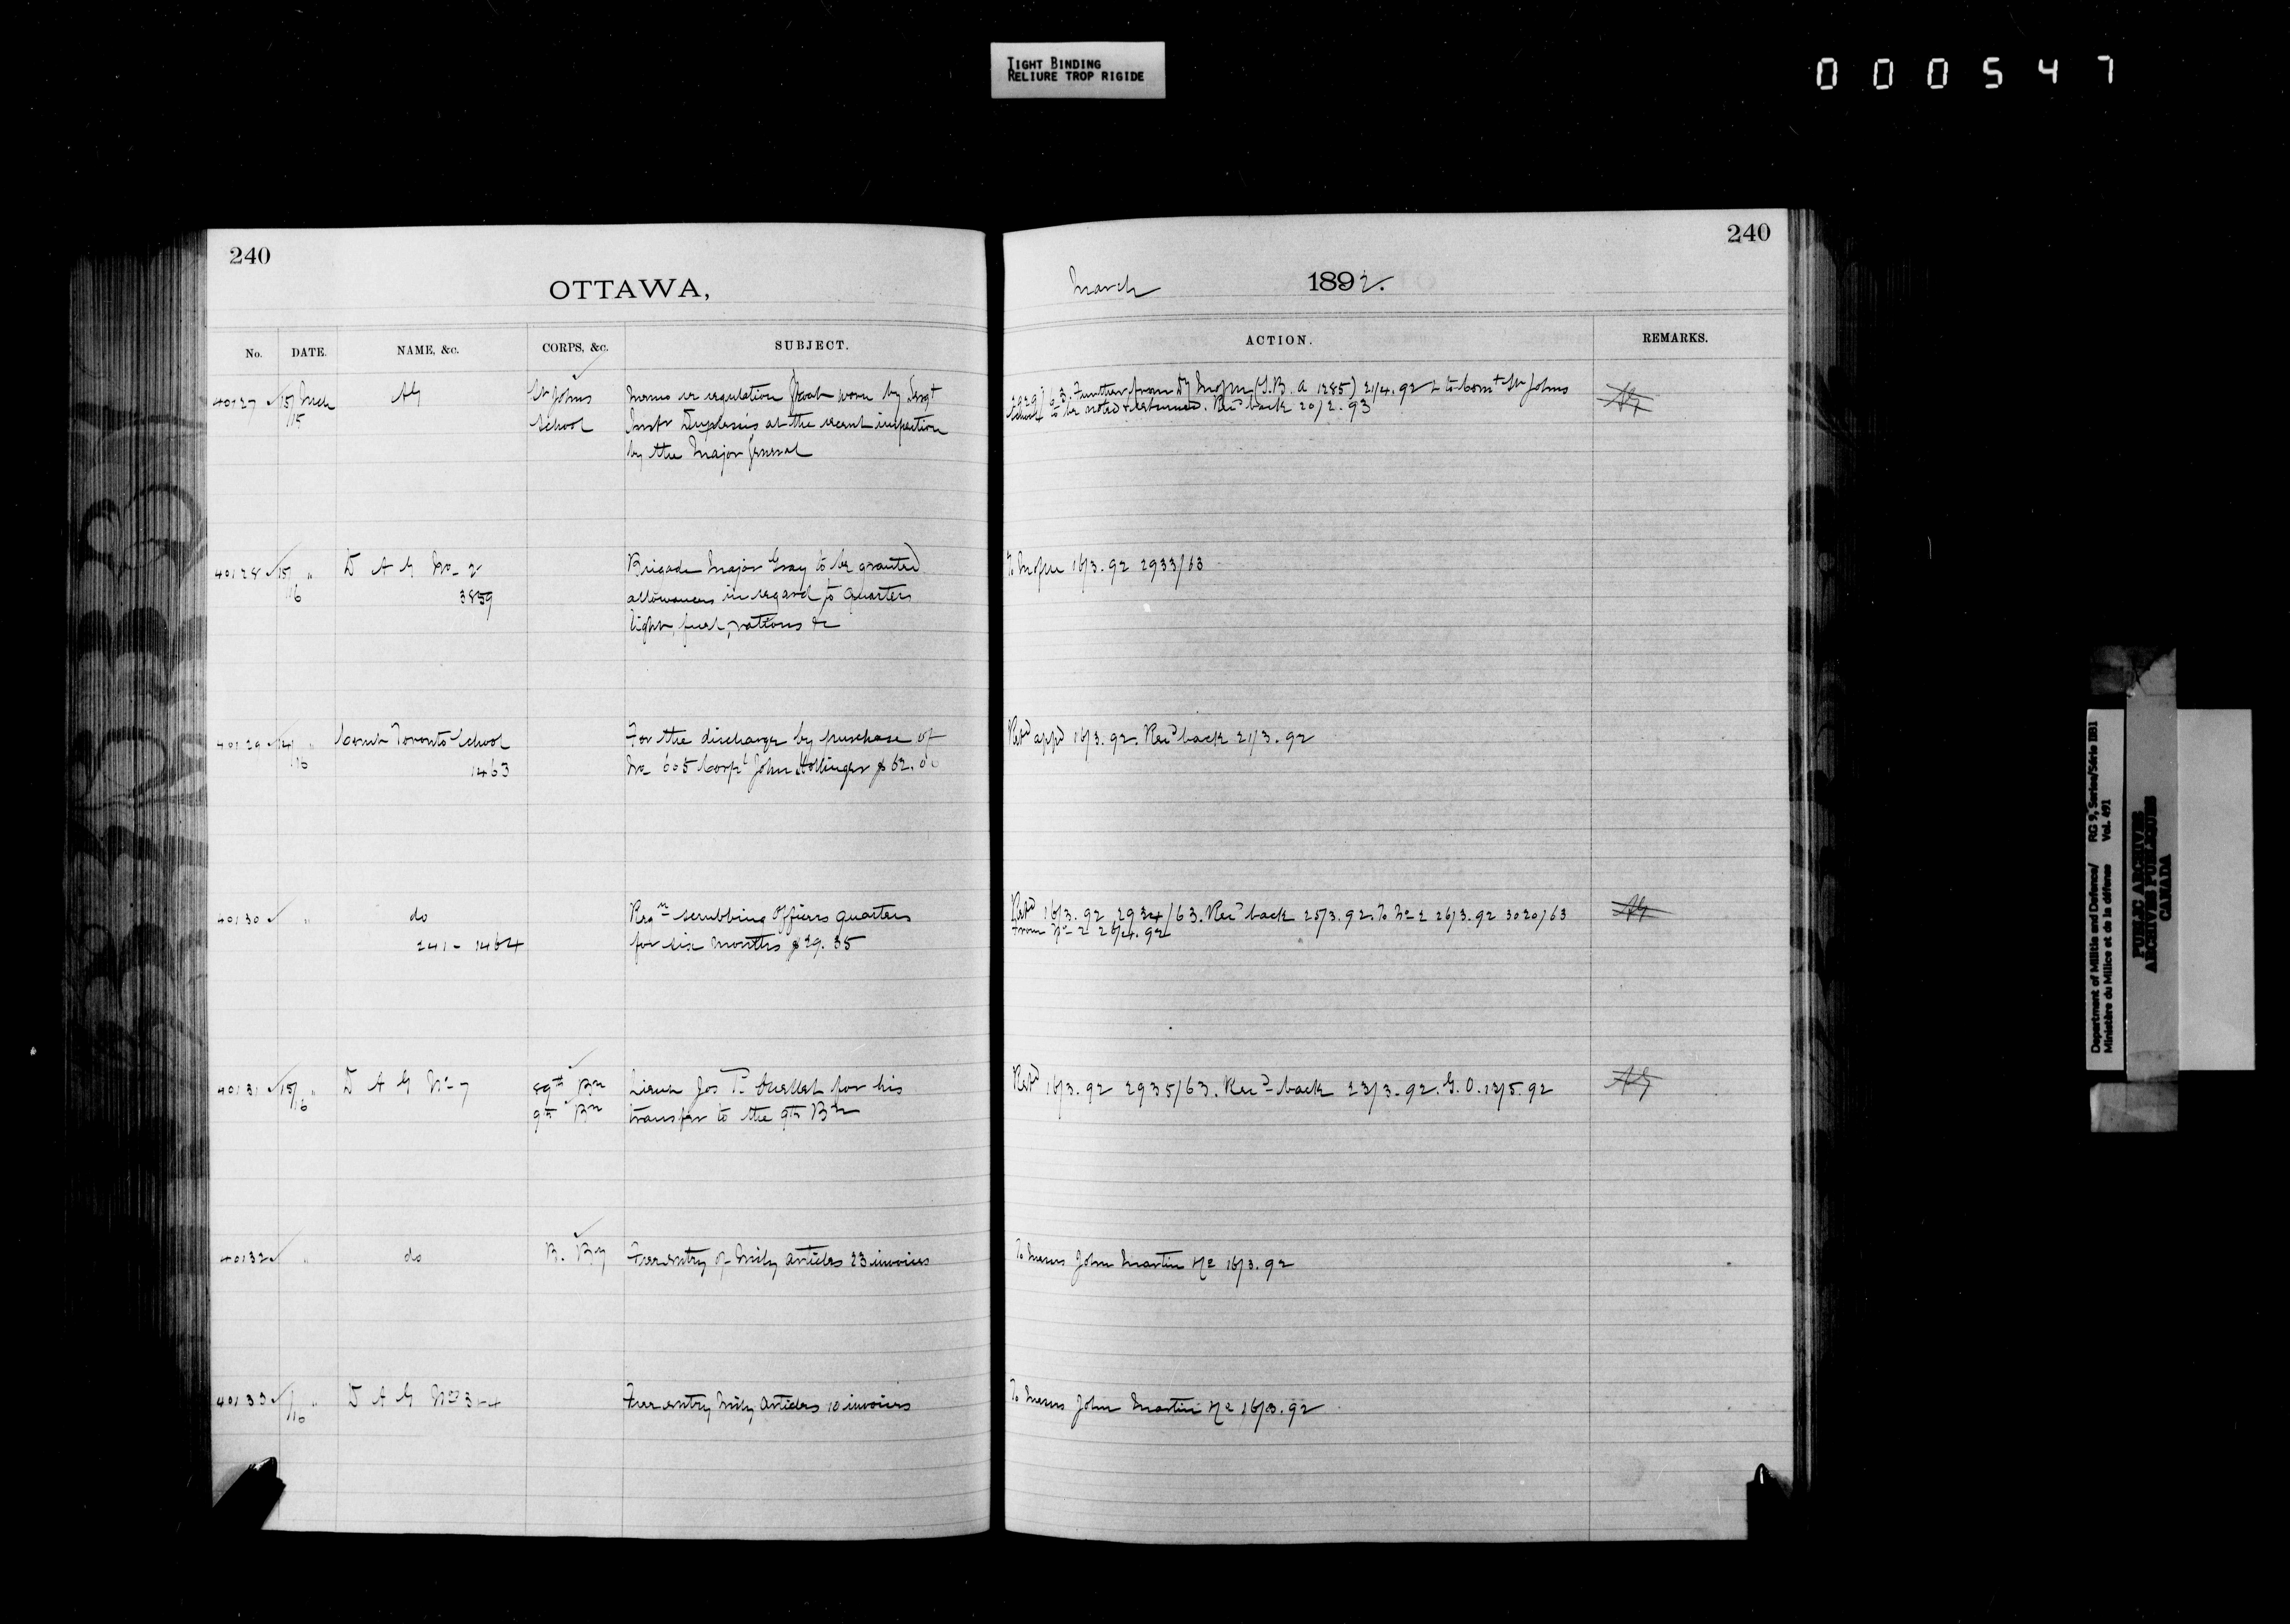 TIGHT BINDING
RELIURE TROP RIGIDE
000547
240
OTTAWA,
No. DATE. NAME, &c. CORPS, &c. SUBJECT.
40127 15/ Mch AG St Johns Memo re regulation worn by Sergt
/15 School Instr Duplessis at the recent inspection
by the Major General
40128 15/ " D A G No 2 Brigade Major Gray to be granted
/16 3859 allowances in regard to quarters
light, fuel, rations &c
40129 14/ " Comt Toronto School For the discharge by purchase of
/16 1463 No 605 Corpl John Hollinger $62.00
40130 " do Reqn scrubbing Officers quarters
241 - 1464 for six months $29.35
40131 15/ " D A G No 7 89th Bn Lieut Jos T. Ouellet for his
/16 9th Bn transfer to the 9th Bn
40132 " do Free entry of Mily articles 23 invoices
40133 " D A G No 3-4 Free entry Mily Articles 10 invoices
/16
240
March 1892.
ACTION. REMARKS.
2929/63. Further from (G.B. a 1285) 21/4.92 to Comt St Johns AG
School to be noted & returned. Recd back 20/2.93
16/3.92 2933/63
Retd appd 16/3.92. Recd back 21/3.92
Retd 16/3.92 2934/63. Recd back 25/3.92. To No 2 26/3.92 3020/63 AG
from No 2 26/4.92
Retd 16/3.92 2935/63. Recd back 23/3.92. G.O. 13/5.92 AG
To Messrs John Martin &c 16/3.92
To Messrs John Martin &c 16/3.92
Department of Militia and Defence/ RG 9, Series/Série IIB1
Ministère du Milice et de la défense Vol. 491
PUBLIC ARCHIVES
ARCHIVES PUBLIQUES
CANADA